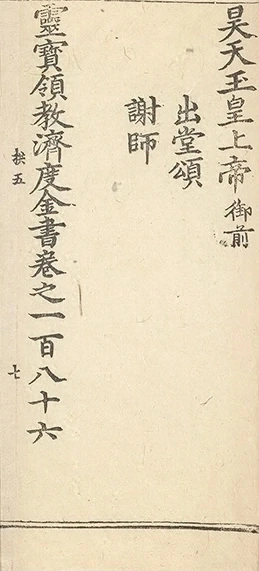 昊天玉皇上帝御前
出堂頌
謝師
靈寶領教濟度金書卷之一百八十六
拱五
七